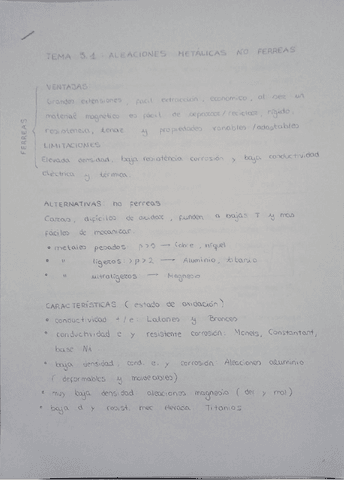 TEMA 9.1 ALEACIONES METÁLICAS NO FERREAS
FERREAS
VENTAJAS
Grandes extensiones, fácil extracción, económico, al ser un
material magnético es fácil de separar/reciclar, rígido,
resistencia, tenaz y propiedades variables/adaptables
LIMITACIONES
Elevada densidad, baja resistencia corrosión y baja conductividad
eléctrica y térmica.
ALTERNATIVAS no ferreas
Caras, difíciles de, funden a bajas T y mas
fáciles de mecanizar
* metales pesados → Cobre, Níquel
* " ligeros → Aluminio, titanio
* " ultraligeros → Magnesio
CARACTERÍSTICAS (estado de oxidación)
* conductividad +/e Latones y Bronces
* conductividad e y resistente corrosión. Monels, Constantan,
base Ni
* baja densidad, cond. e. y corrosión Aleaciones aluminio
(deformables y moldeables)
* muy baja densidad aleaciones magnesio (def y mol)
* baja d y resist mec elevada Titanios